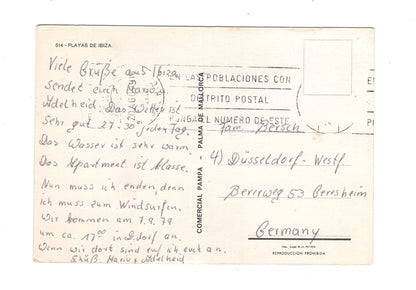 514 - PLAYAS DE IBIZA.
Viele Grüße aus Ibiza
sendet euch Mario u.
Adelheid. Das Wetter ist
sehr gut 27-30° jeden Tag.
Das Wasser ist sehr warm.
Das Apartment ist klasse.
Nun muss ich enden, denn
ich muss zum Windsurfen.
Wir kommen am 7.9.79
um ca. 17⁰⁰ in D.dorf an.
Wenn wir dort sind ruf ich euch an.
Tschüß Mario + Adelheid
COMERCIAL PAMPA - PALMA DE MALLORCA
EN LAS POBLACIONES CON
DISTRITO POSTAL
PONGA EL NUMERO DE ESTE
Fam. Bersch
4) Düsseldorf-Westf
53 Gerresheim
Germany
REPRODUCCION PROHIBIDA